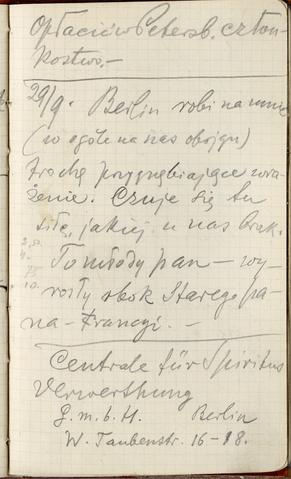 Opłacić w Petersb. człon-
kostwo.—
29/9. Berlin robi na mnie
(w ogóle na nas obojgu)
trochę przygnębiające wra-
żenie. Czuje się tu
siłę, jakiej u nas brak.
To młody pan — wy-
rosły obok Starego pa-
na — Francyi. —
Centrale für Spiritus
Verwerthung
G. m. b. H. Berlin
W. Taubenstr. 16-18.